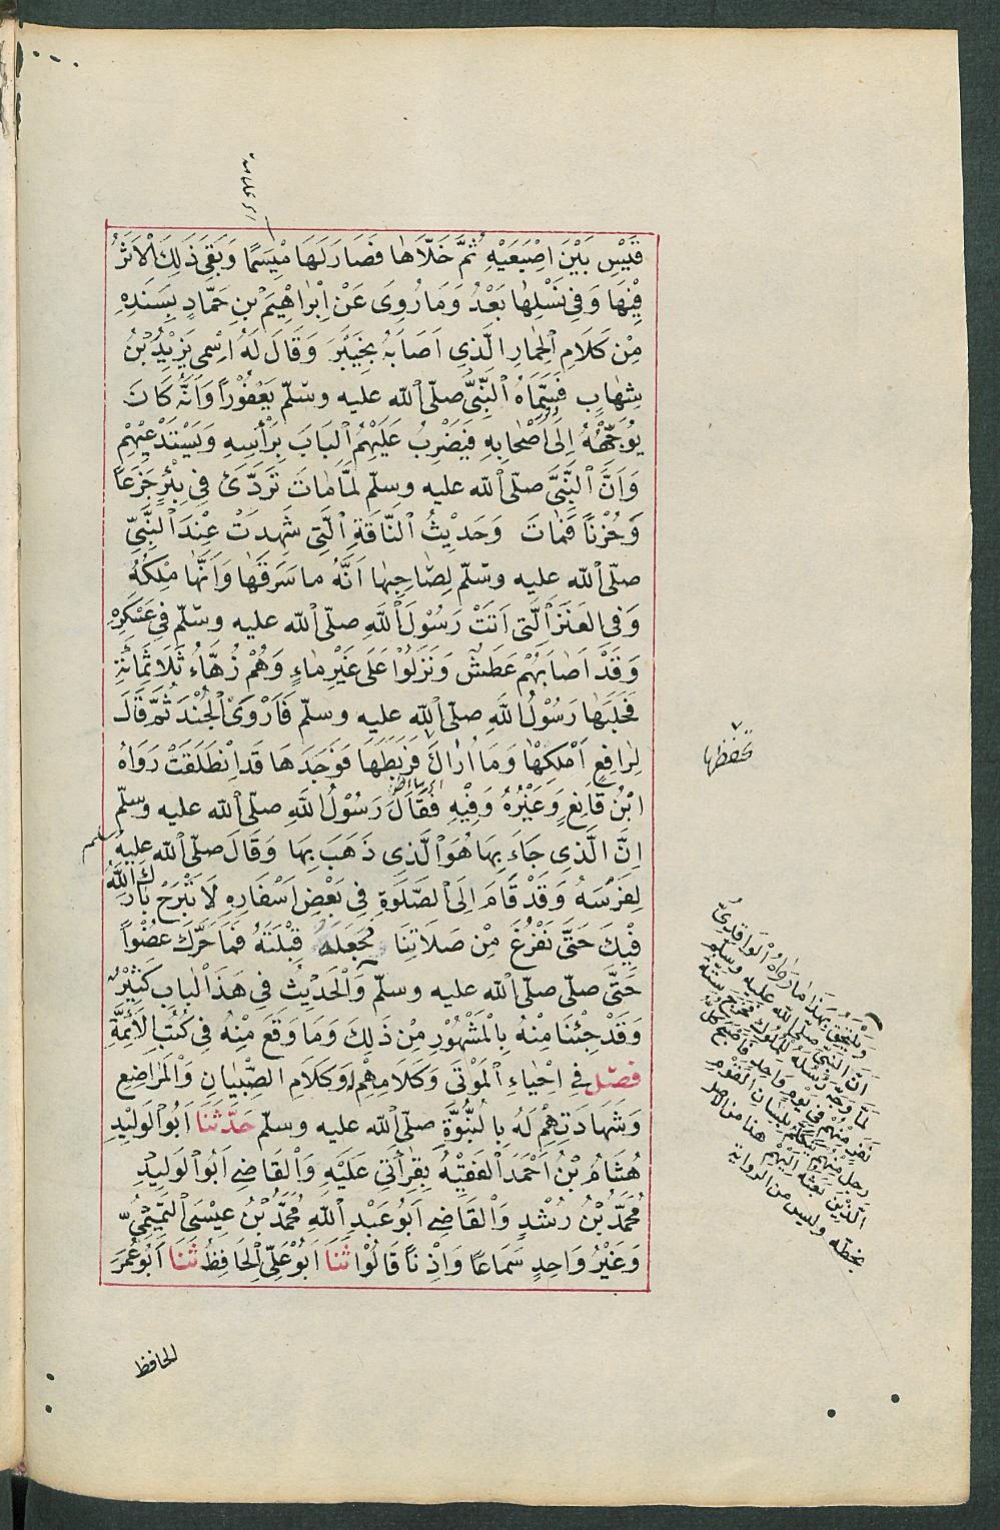 قَيْسٍ بَيْنَ اِصْبَعَيْهِ ثُمَّ خَلَّاهَا فَصَارَ لَهَا مِيْسَمًا وَبَقِيَ ذٰلِكَ الْاَثَرُ
فِيْهَا وَفِي نَسْلِهَا بَعْدُ وَمَا رُوِىَ عَنْ اِبْرَاهِيْمَ بْنِ حَمَّادٍ بِسَنَدِهِ
مِنْ كَلَامِ الْحِمَارِ الَّذِي اَصَابَهُ بِخَيْبَرَ وَقَالَ لَهُ اسْمِى يَزِيْدُ بْنُ
شِهَابٍ فَسَمَّاهُ النَّبِيُّ صلّى الله عليه وسلّم يَعْفُوْرًا وَاَنَّهُ كَانَ
يُوَجِّهُهُ اِلَى اَصْحَابِهِ فَيَضْرِبُ عَلَيْهِمُ الْبَابَ بِرَأْسِهِ وَيَسْتَدْعِيْهِمْ
وَاَنَّ النَّبِيَّ صلّى الله عليه وسلّم لَمَّا مَاتَ تَرَدَّى فِي بِئْرٍ جَزَعًا
وَحُزْنًا فَمَاتَ وَحَدِيْثُ النَّاقَةِ الَّتِي شَهِدَتْ عِنْدَ النَّبِيِّ
صلّى الله عليه وسلّم لِصَاحِبِهَا اَنَّهُ مَا سَرَقَهَا وَاَنَّهَا مِلْكُهُ
وَفِي الْعَنْزِ الَّتِي اَتَتْ رَسُوْلَ اللهِ صلّى الله عليه وسلّم فِي عَسْكَرِهِ
وَقَدْ اَصَابَهُمْ عَطَشٌ وَنَزَلُوْا عَلَى غَيْرِ مَاءٍ وَهُمْ زُهَاءُ ثَلَاثِمِائَةٍ
فَحَلَبَهَا رَسُوْلُ اللهِ صلّى الله عليه وسلّم فَاَرْوَى الْجُنْدَ ثُمَّ قَالَ
لِرَافِعٍ اَمْلِكْهَا وَمَا اَرَاكَ فَرَبَطَهَا فَوَجَدَهَا قَدِ انْطَلَقَتْ رَوَاهُ
ابْنُ قَانِعٍ وَغَيْرُهُ وَفِيْهِ فَقَالَ رَسُوْلُ اللهِ صلّى الله عليه وسلّم
اِنَّ الَّذِي جَاءَ بِهَا هُوَ الَّذِي ذَهَبَ بِهَا وَقَالَ صلّى الله عليه وسلم
لِفَرَسِهِ وَقَدْ قَامَ اِلَى الصَّلٰوةِ فِي بَعْضِ اَسْفَارِهِ لَا تَبْرَحْ بَارَكَ اللهُ
فِيْكَ حَتَّى نَفْرُغَ مِنْ صَلَاتِنَا وَجَعَلَهُ قِبْلَتَهُ فَمَا حَرَّكَ عُضْوًا
حَتَّى صَلَّى صلّى الله عليه وسلّم وَالْحَدِيْثُ فِي هَذَا الْبَابِ كَثِيْرٌ
وَقَدْ جِئْنَا مِنْهُ بِالْمَشْهُوْرِ مِنْ ذٰلِكَ وَمَا وَقَعَ مِنْهُ فِي كُتُبِ الْاَئِمَّةِ
فصل فِي اِحْيَاءِ الْمَوْتَى وَكَلَامِهِمْ وَكَلَامِ الصِّبْيَانِ وَالْمَرَاضِعِ
وَشَهَادَتِهِمْ لَهُ بِالنُّبُوَّةِ صلّى الله عليه وسلّم حَدَّثَنَا اَبُو الْوَلِيْدِ
هِشَامُ بْنُ اَحْمَدَ الْفَقِيْهُ بِقِرَأَتِي عَلَيْهِ وَالْقَاضِي اَبُو الْوَلِيْدِ
مُحَمَّدُ بْنُ رُشْدٍ وَالْقَاضِي اَبُو عَبْدِ اللهِ مُحَمَّدُ بْنُ عِيْسَى التَّمِيْمِيُّ
وَغَيْرُ وَاحِدٍ سَمَاعًا وَاِذْنًا قَالُوْا ثَنَا اَبُو عَلِيٍّ الْحَافِظُ ثَنَا اَبُو عُمَرَ
الحافظ
تحفظها
وَيَلْتَحِقُ بِهَذَا مَا رَوَاهُ الْوَاقِدِيُّ
اَنَّ النَّبِيَّ صلّى الله عليه وسلّم
لَمَّا وَجَّهَ رُسُلَهُ لِلْمُلُوْكِ فَخَرَجَ سِتَّةُ
نَفَرٍ مِنْهُمْ فِي يَوْمٍ وَاحِدٍ فَاَصْبَحَ كُلُّ
رَجُلٍ مِنْهُمْ يَتَكَلَّمُ بِلِسَانِ الْقَوْمِ
الَّذِيْنَ بَعَثَهُ اِلَيْهِمْ هذا من الاصل
بخطه وليس من الرواية